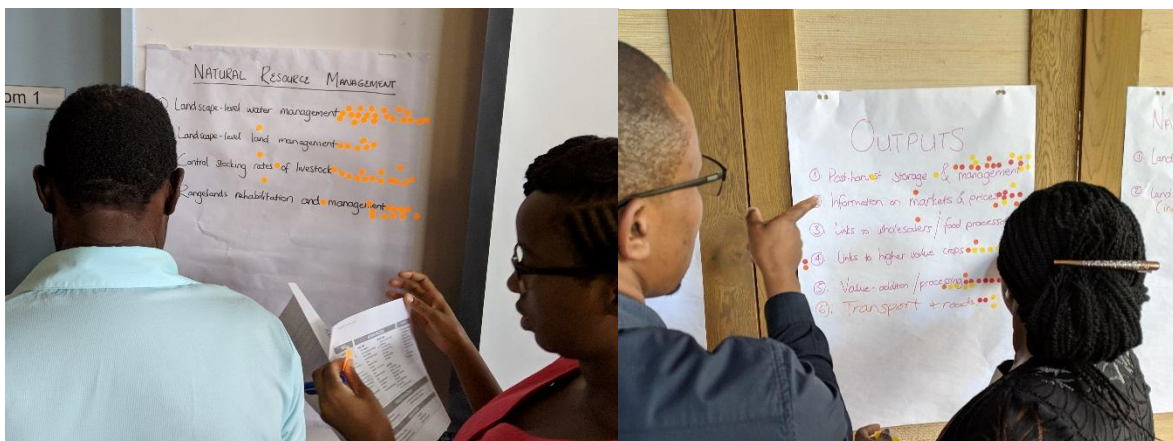 om 1
NATURAL RESOURCE MANAGEMENT
Landscape-level water management
Landscape-level land management
Control stocking rates of livestock
Rangelands rehabilitation and management
OUTPUTS
① Post-harvest storage & management
Information on markets & prices
③. Links to wholesalers / food processors
④. Links to higher value crops
⑤. Value-addition / processing
⑥. Transport + roads
NA
① Land
② Land
(in